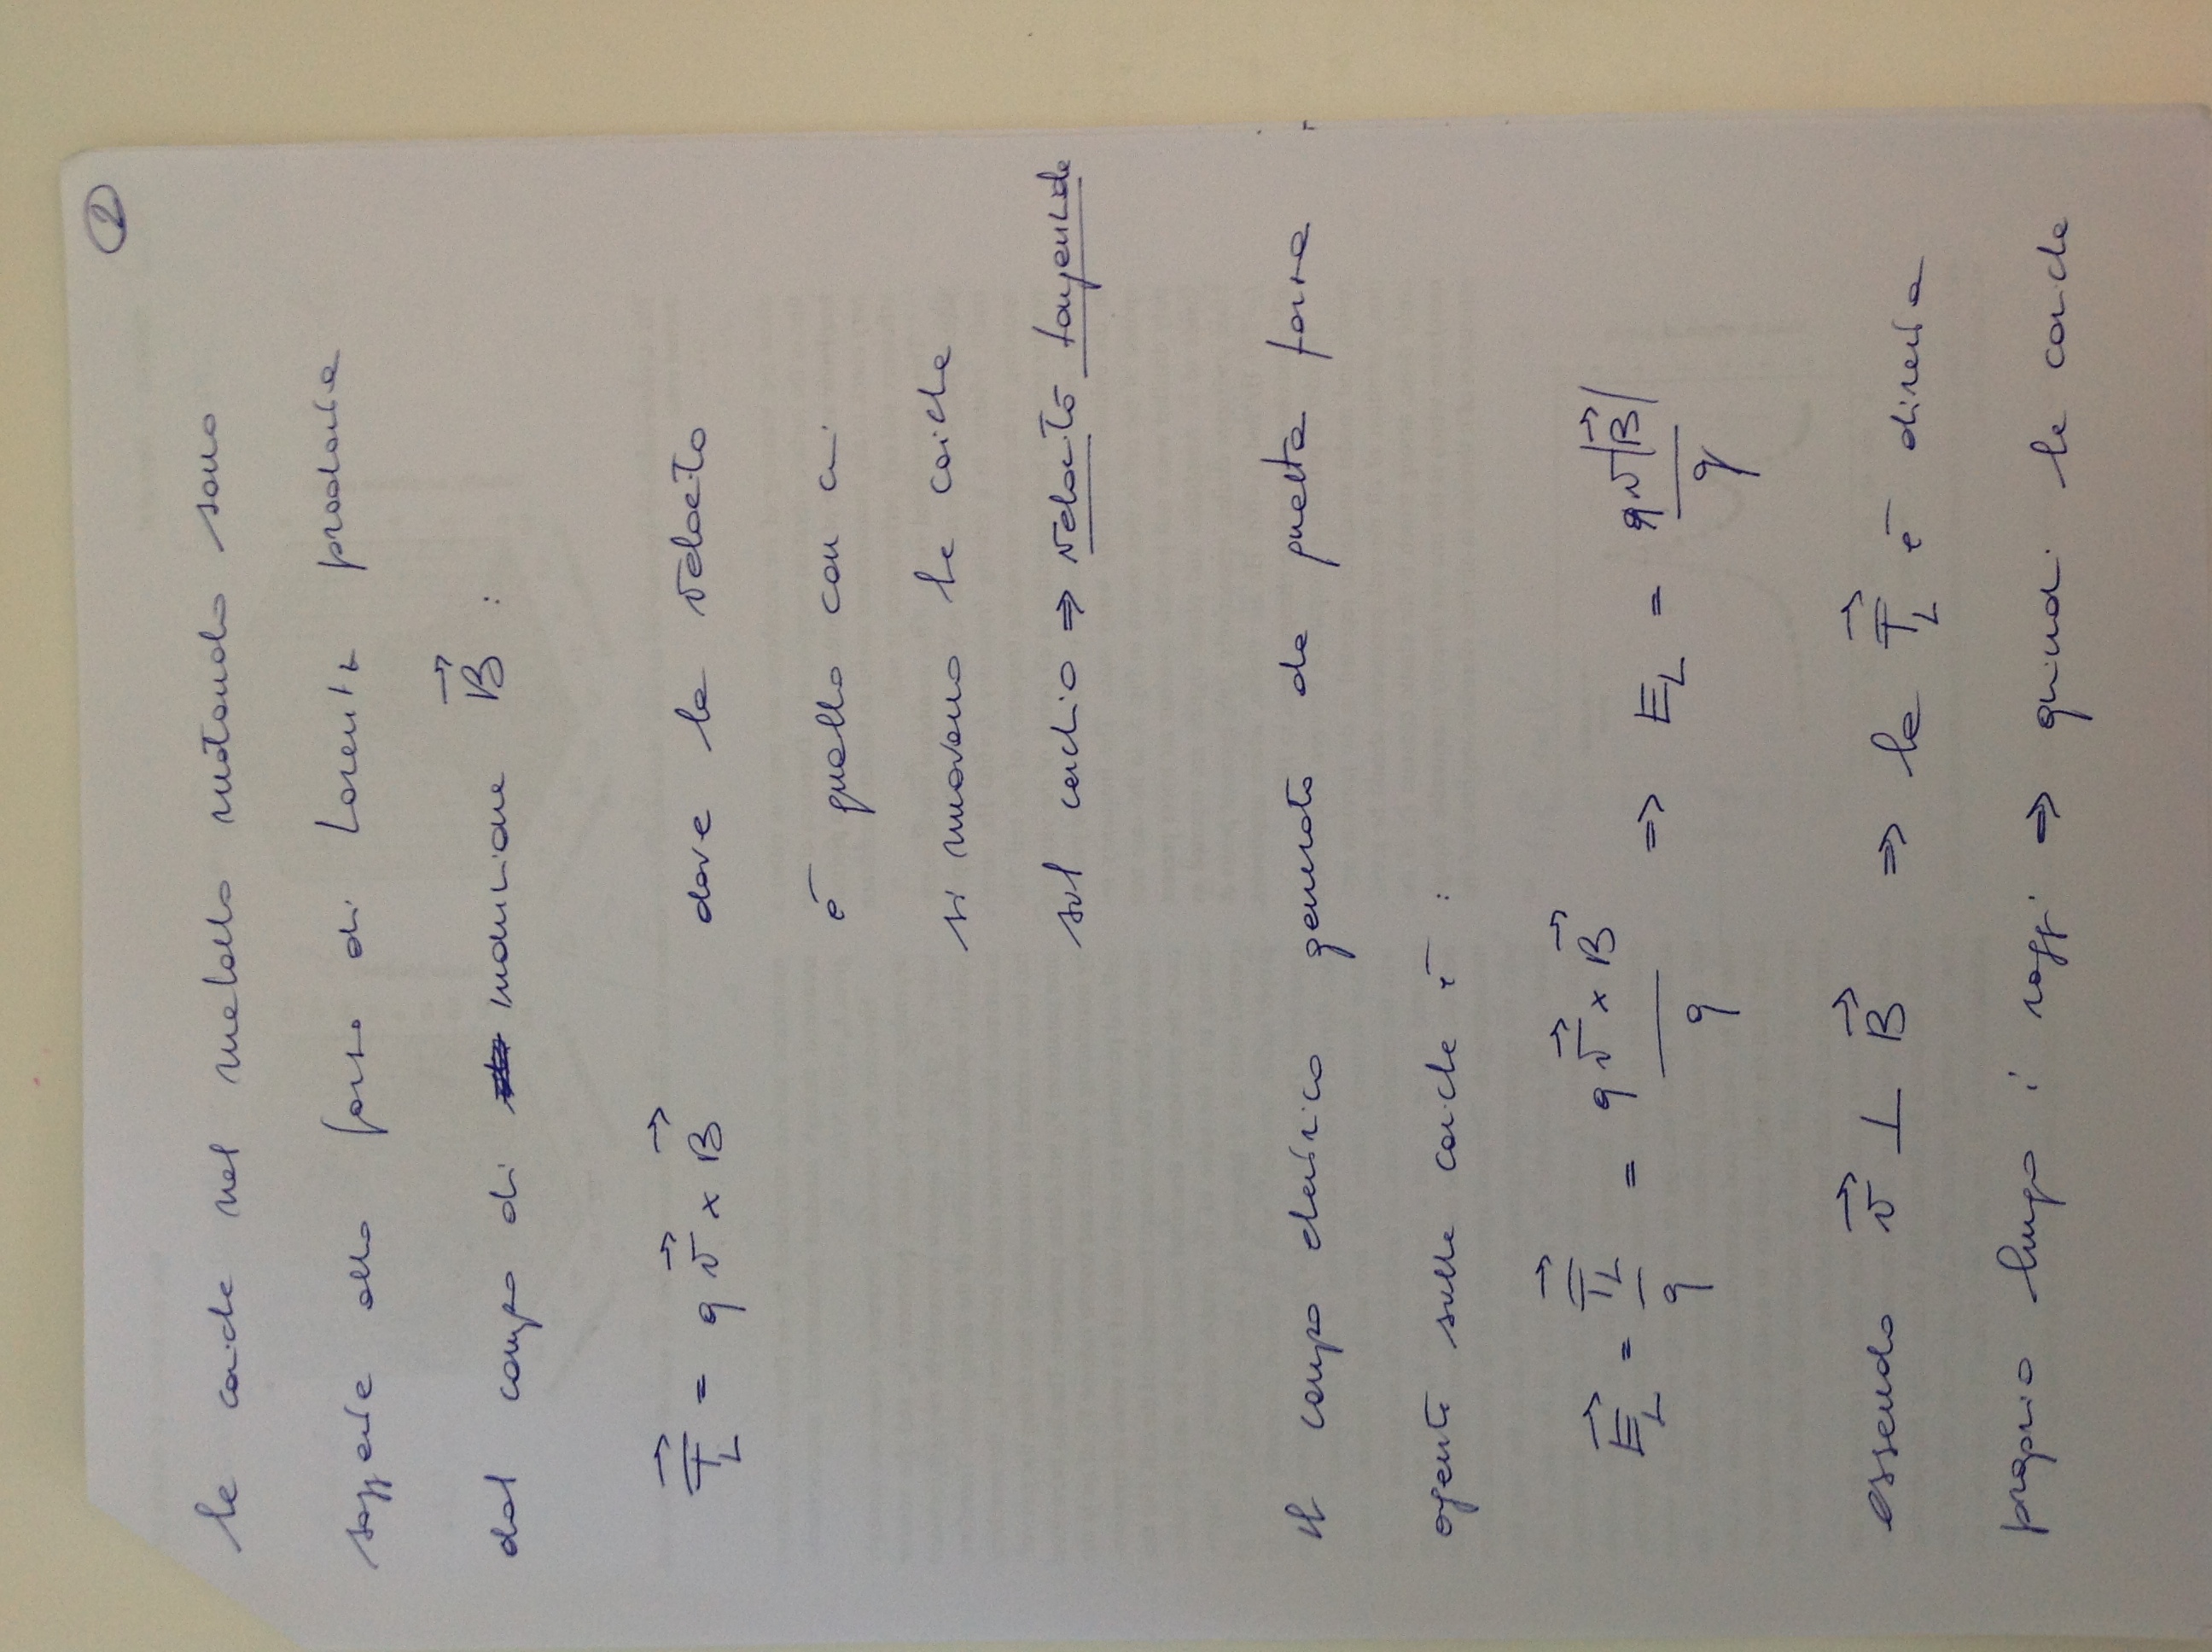 2
le cariche nel metallo ruotando sono
soggette alla forza di Lorentz prodotta
dal campo di induzione B⃗ :
F⃗_L = q v⃗ × B⃗ dove la velocità
è quella con cui
si muovono le cariche
sul cerchio ⇒ velocità tangenziale
il campo elettrico generato da questa forza
agente sulle cariche è :
E⃗_L = F⃗_L / q = q v⃗ × B⃗ / q ⇒ E_L = q v |B⃗| / q
essendo v⃗ ⊥ B⃗ ⇒ la F⃗_L è diretta
proprio lungo i raggi ⇒ quindi le cariche